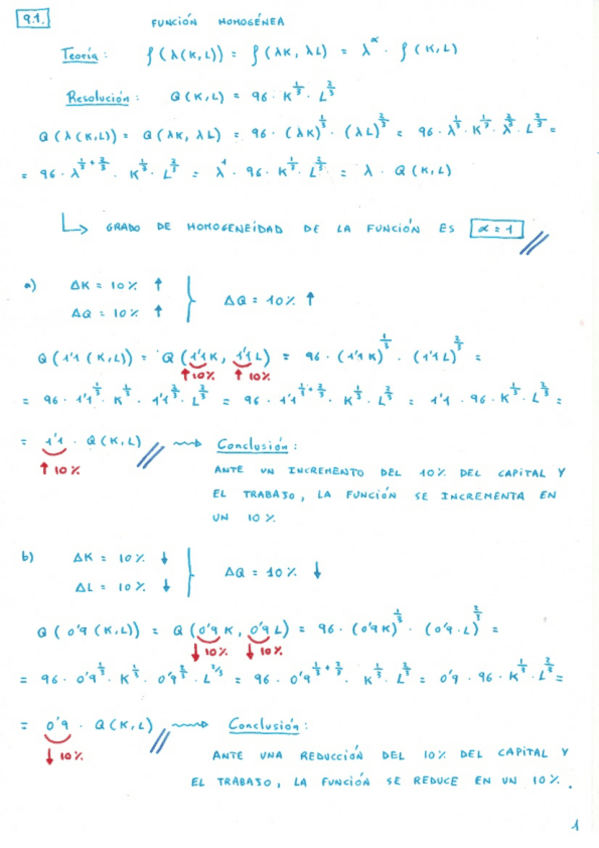 9.1.
FUNCIÓN HOMOGÉNEA
Teoría: f(λ(K,L)) = f(λK, λL) = λ^α · f(K,L)
Resolución: Q(K,L) = 96 · K^(1/3) · L^(2/3)
Q(λ(K,L)) = Q(λK, λL) = 96 · (λK)^(1/3) · (λL)^(2/3) = 96 · λ^(1/3) · K^(1/3) · λ^(2/3) · L^(2/3) =
= 96 · λ^(1/3 + 2/3) · K^(1/3) · L^(2/3) = λ^1 · 96 · K^(1/3) · L^(2/3) = λ · Q(K,L)
↳ GRADO DE HOMOGENEIDAD DE LA FUNCIÓN ES α = 1
a) ΔK = 10% ↑
ΔQ = 10% ↑ } ΔQ = 10% ↑
Q(1'1(K,L)) = Q(1'1K, 1'1L) = 96 · (1'1K)^(1/3) · (1'1L)^(2/3) =
↑10% ↑10%
= 96 · 1'1^(1/3) · K^(1/3) · 1'1^(2/3) · L^(2/3) = 96 · 1'1^(1/3 + 2/3) · K^(1/3) · L^(2/3) = 1'1 · 96 · K^(1/3) · L^(2/3) =
= 1'1 · Q(K,L) ⟿ Conclusión:
↑ 10%
ANTE UN INCREMENTO DEL 10% DEL CAPITAL Y
EL TRABAJO, LA FUNCIÓN SE INCREMENTA EN
UN 10%
b) ΔK = 10% ↓
ΔL = 10% ↓ } ΔQ = 10% ↓
Q(0'9(K,L)) = Q(0'9K, 0'9L) = 96 · (0'9K)^(1/3) · (0'9·L)^(2/3) =
↓10% ↓10%
= 96 · 0'9^(1/3) · K^(1/3) · 0'9^(2/3) · L^(2/3) = 96 · 0'9^(1/3 + 2/3) · K^(1/3) · L^(2/3) = 0'9 · 96 · K^(1/3) · L^(2/3) =
= 0'9 · Q(K,L) ⟿ Conclusión:
↓ 10%
ANTE UNA REDUCCIÓN DEL 10% DEL CAPITAL Y
EL TRABAJO, LA FUNCIÓN SE REDUCE EN UN 10%.
1